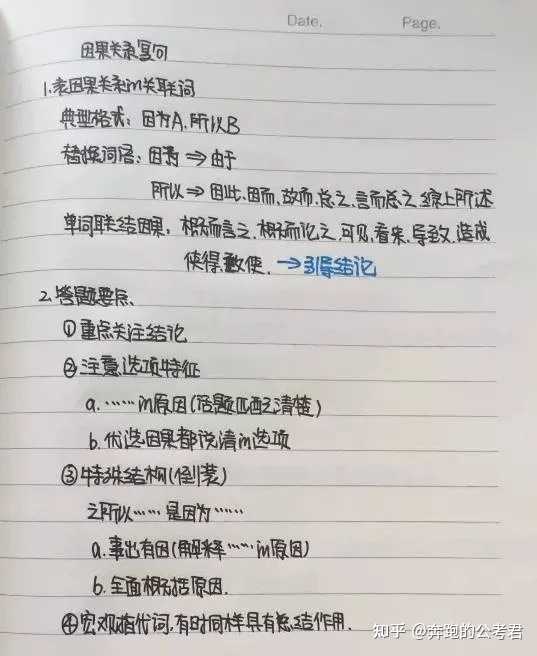 Date.
Page.
因果关系复句
1.表因果关系的关联词
典型格式：因为A，所以B
替换词语：因为⇒由于
所以⇒因此、因而、故而、总之、言而总之、综上所述
单词联结因果：概而言之、概而论之、可见、看来、导致、造成
使得、致使、→引导结论
2.答题要点、
①重点关注结论
②注意选项特征
a.……的原因(话题匹配清楚)
b.优选因果都说清的选项
③特殊结构(倒装)
之所以……是因为……
a.事出有因(解释……的原因)
b.全面概括原因.
④宏观指代词,有时同样具有总结作用.
知乎 @奔跑的公考君